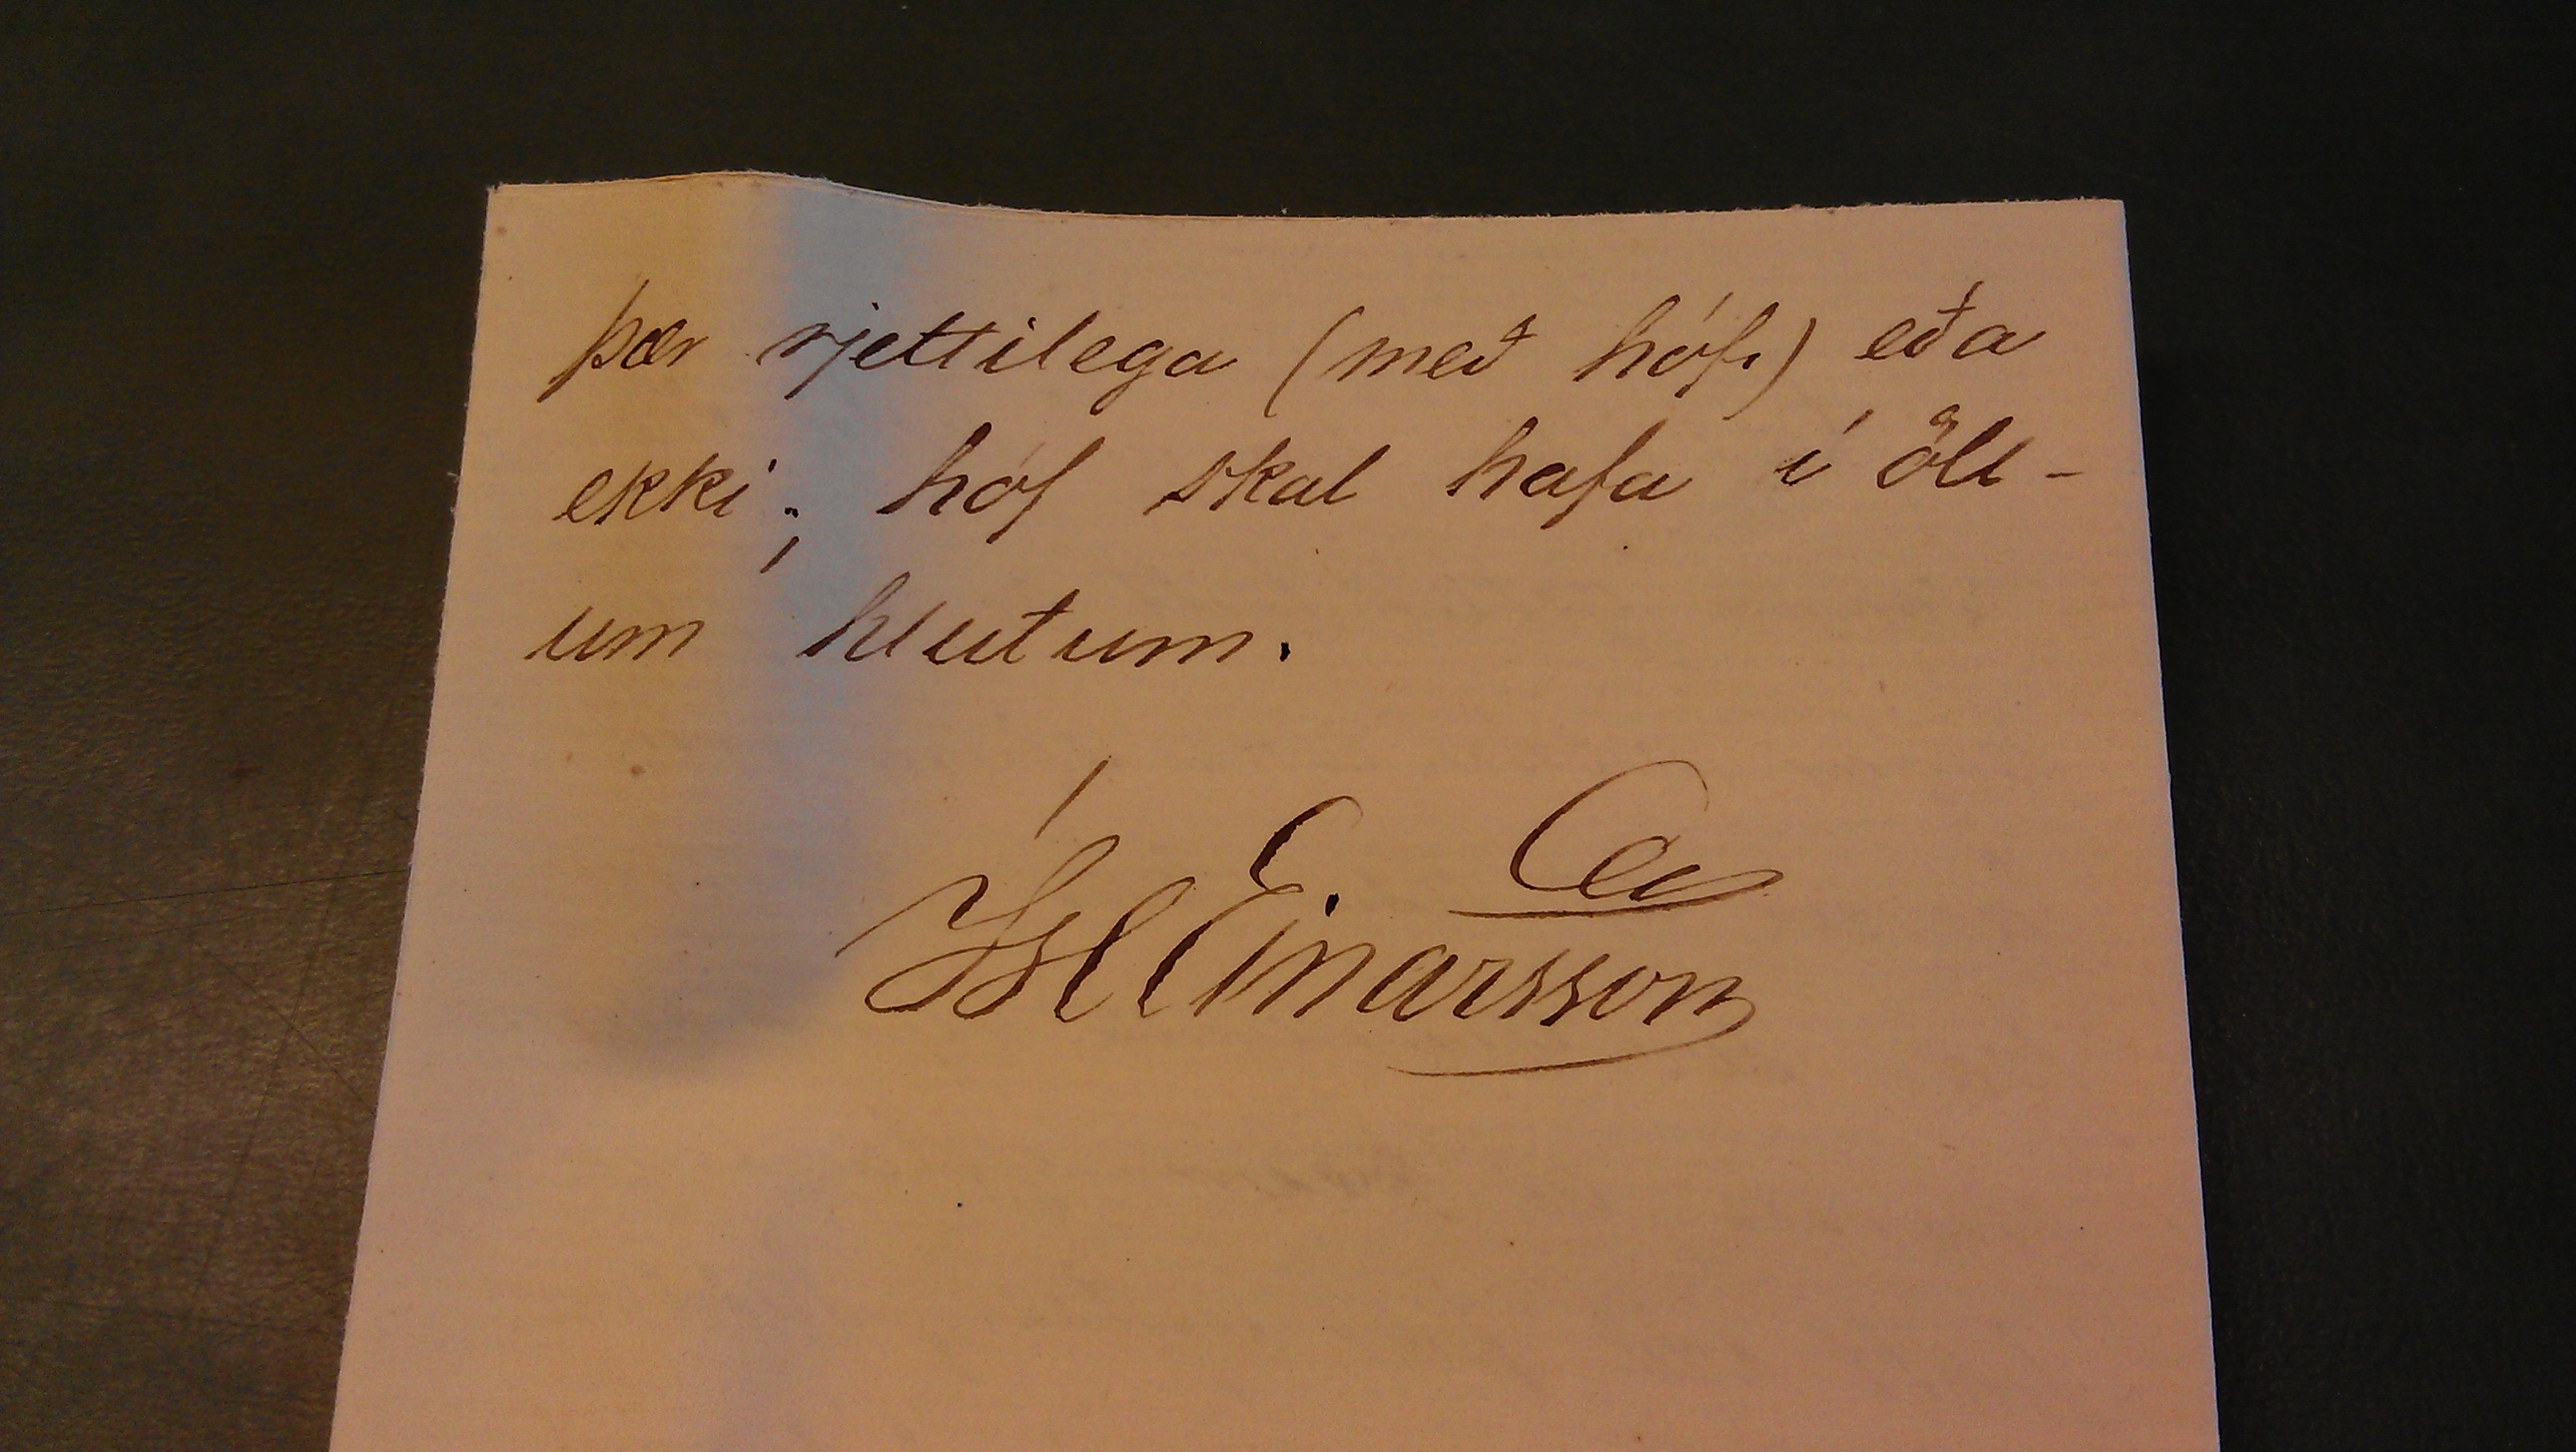 þær rjettilega (með hófi) eða
ekki; hóf skal hafa í öll-
um hlutum.
Ísl Einarsson